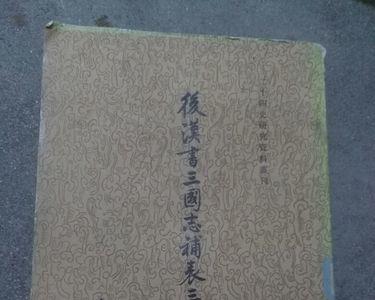 二十四史研究資料叢刊
後漢書三國志補表三